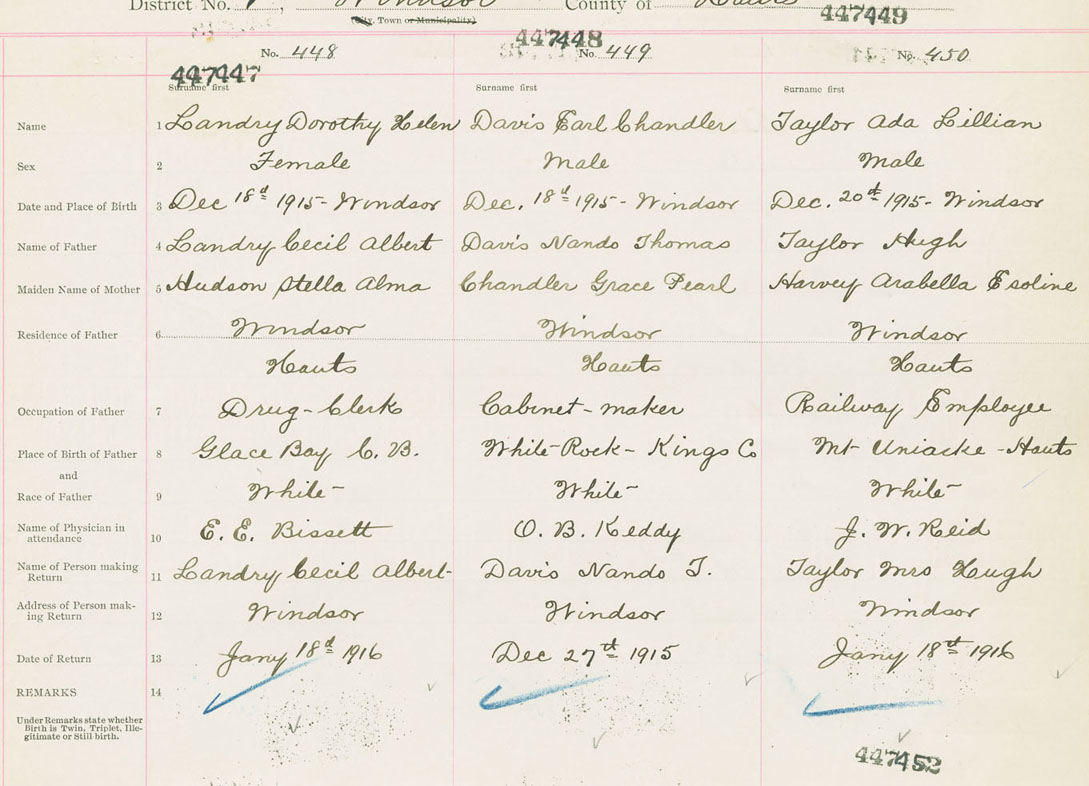 District No. , Windsor County of Hants
(City, Town or Municipality)
447449
447448
No. 448 No. 449 No. 450
447447
Surname first Surname first Surname first
Name 1 Landry Dorothy Helen Davis Earl Chandler Taylor Ada Lillian
Sex 2 Female Male Male
Date and Place of Birth 3 Dec 18d 1915- Windsor Dec. 18d 1915- Windsor Dec. 20th 1915- Windsor
Name of Father 4 Landry Cecil Albert Davis Nando Thomas Taylor Hugh
Maiden Name of Mother 5 Hudson Stella Alma Chandler Grace Pearl Harvey Arabella Esoline
Residence of Father 6 Windsor Windsor Windsor
Hants Hants Hants
Occupation of Father 7 Drug-Clerk Cabinet-maker Railway Employee
Place of Birth of Father 8 Glace Bay C. B. White-Rock- Kings Co Mt Uniacke - Hants
and
Race of Father 9 White- White- White-
Name of Physician in
attendance 10 E. E. Bissett O. B. Keddy J. W. Reid
Name of Person making
Return 11 Landry Cecil Albert- Davis Nando T. Taylor Mrs Hugh
Address of Person mak-
ing Return 12 Windsor Windsor Windsor
Date of Return 13 Jany 18d 1916 Dec 27th 1915 Jany 18th 1916
REMARKS 14
Under Remarks state whether
Birth is Twin, Triplet, Ille-
gitimate or Still birth.
447452